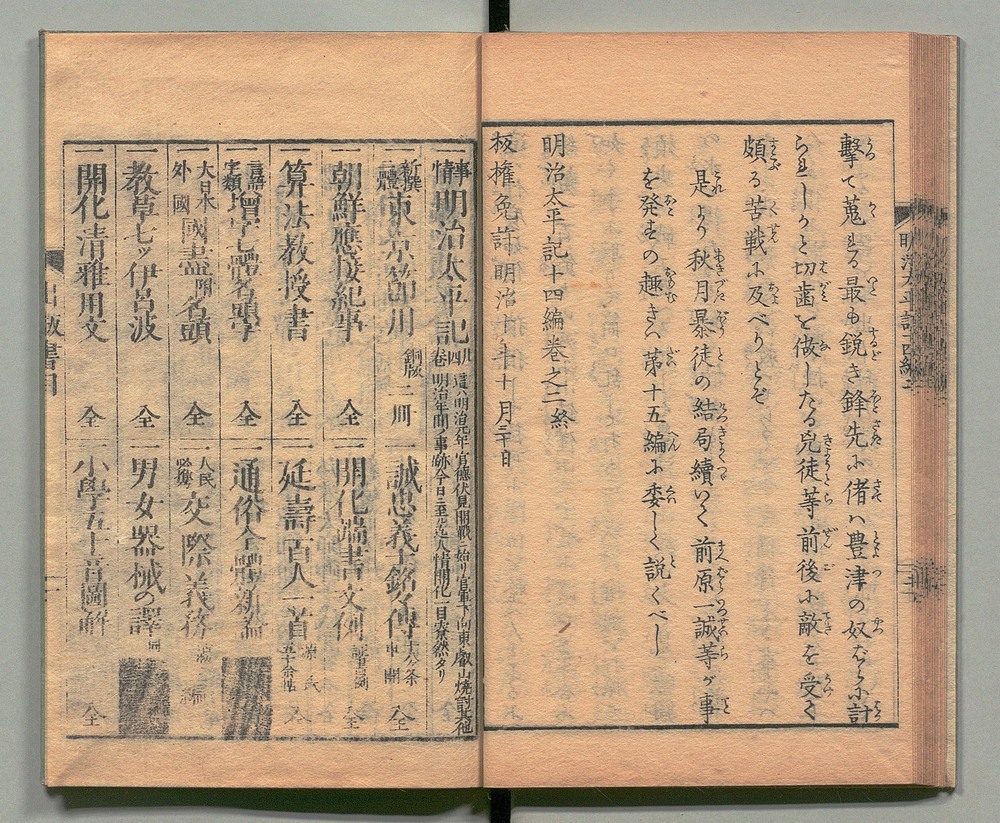 撃て蒐る最も鋭き鋒先に偖ハ豊津の奴ばらに計
られしかと切歯を做したる兇徒等前後に敵を受く
頗る苦戦に及べりとぞ
是より秋月暴徒の結局續いて前原一誠等が事
を発すの趣きハ第十五編に委しく説くべし
明治太平記十四編巻之二終
板権免許明治十年十月三十日
事情明治太平記 四卷
這ハ明治元年官德伏見開戰ニ始リ官軍下向東叡山焼討其他
明治年間ノ事跡今日ニ至迄人情開化一目瞭然タリ
新撰 東京節用 銅版 二冊
朝鮮應接紀事 全
算法教授書 全
言語字類 增字七體名頭字 全
大日本外國 國盡 名頭 全
教草七ッ伊呂波 全
開化清雅用文 全
誠忠義士銘々傳
開化端書文例 全
延壽百人一首
通俗全體新論
人民必携 交際義務
男女器械の譯 全
小學五十音圖解